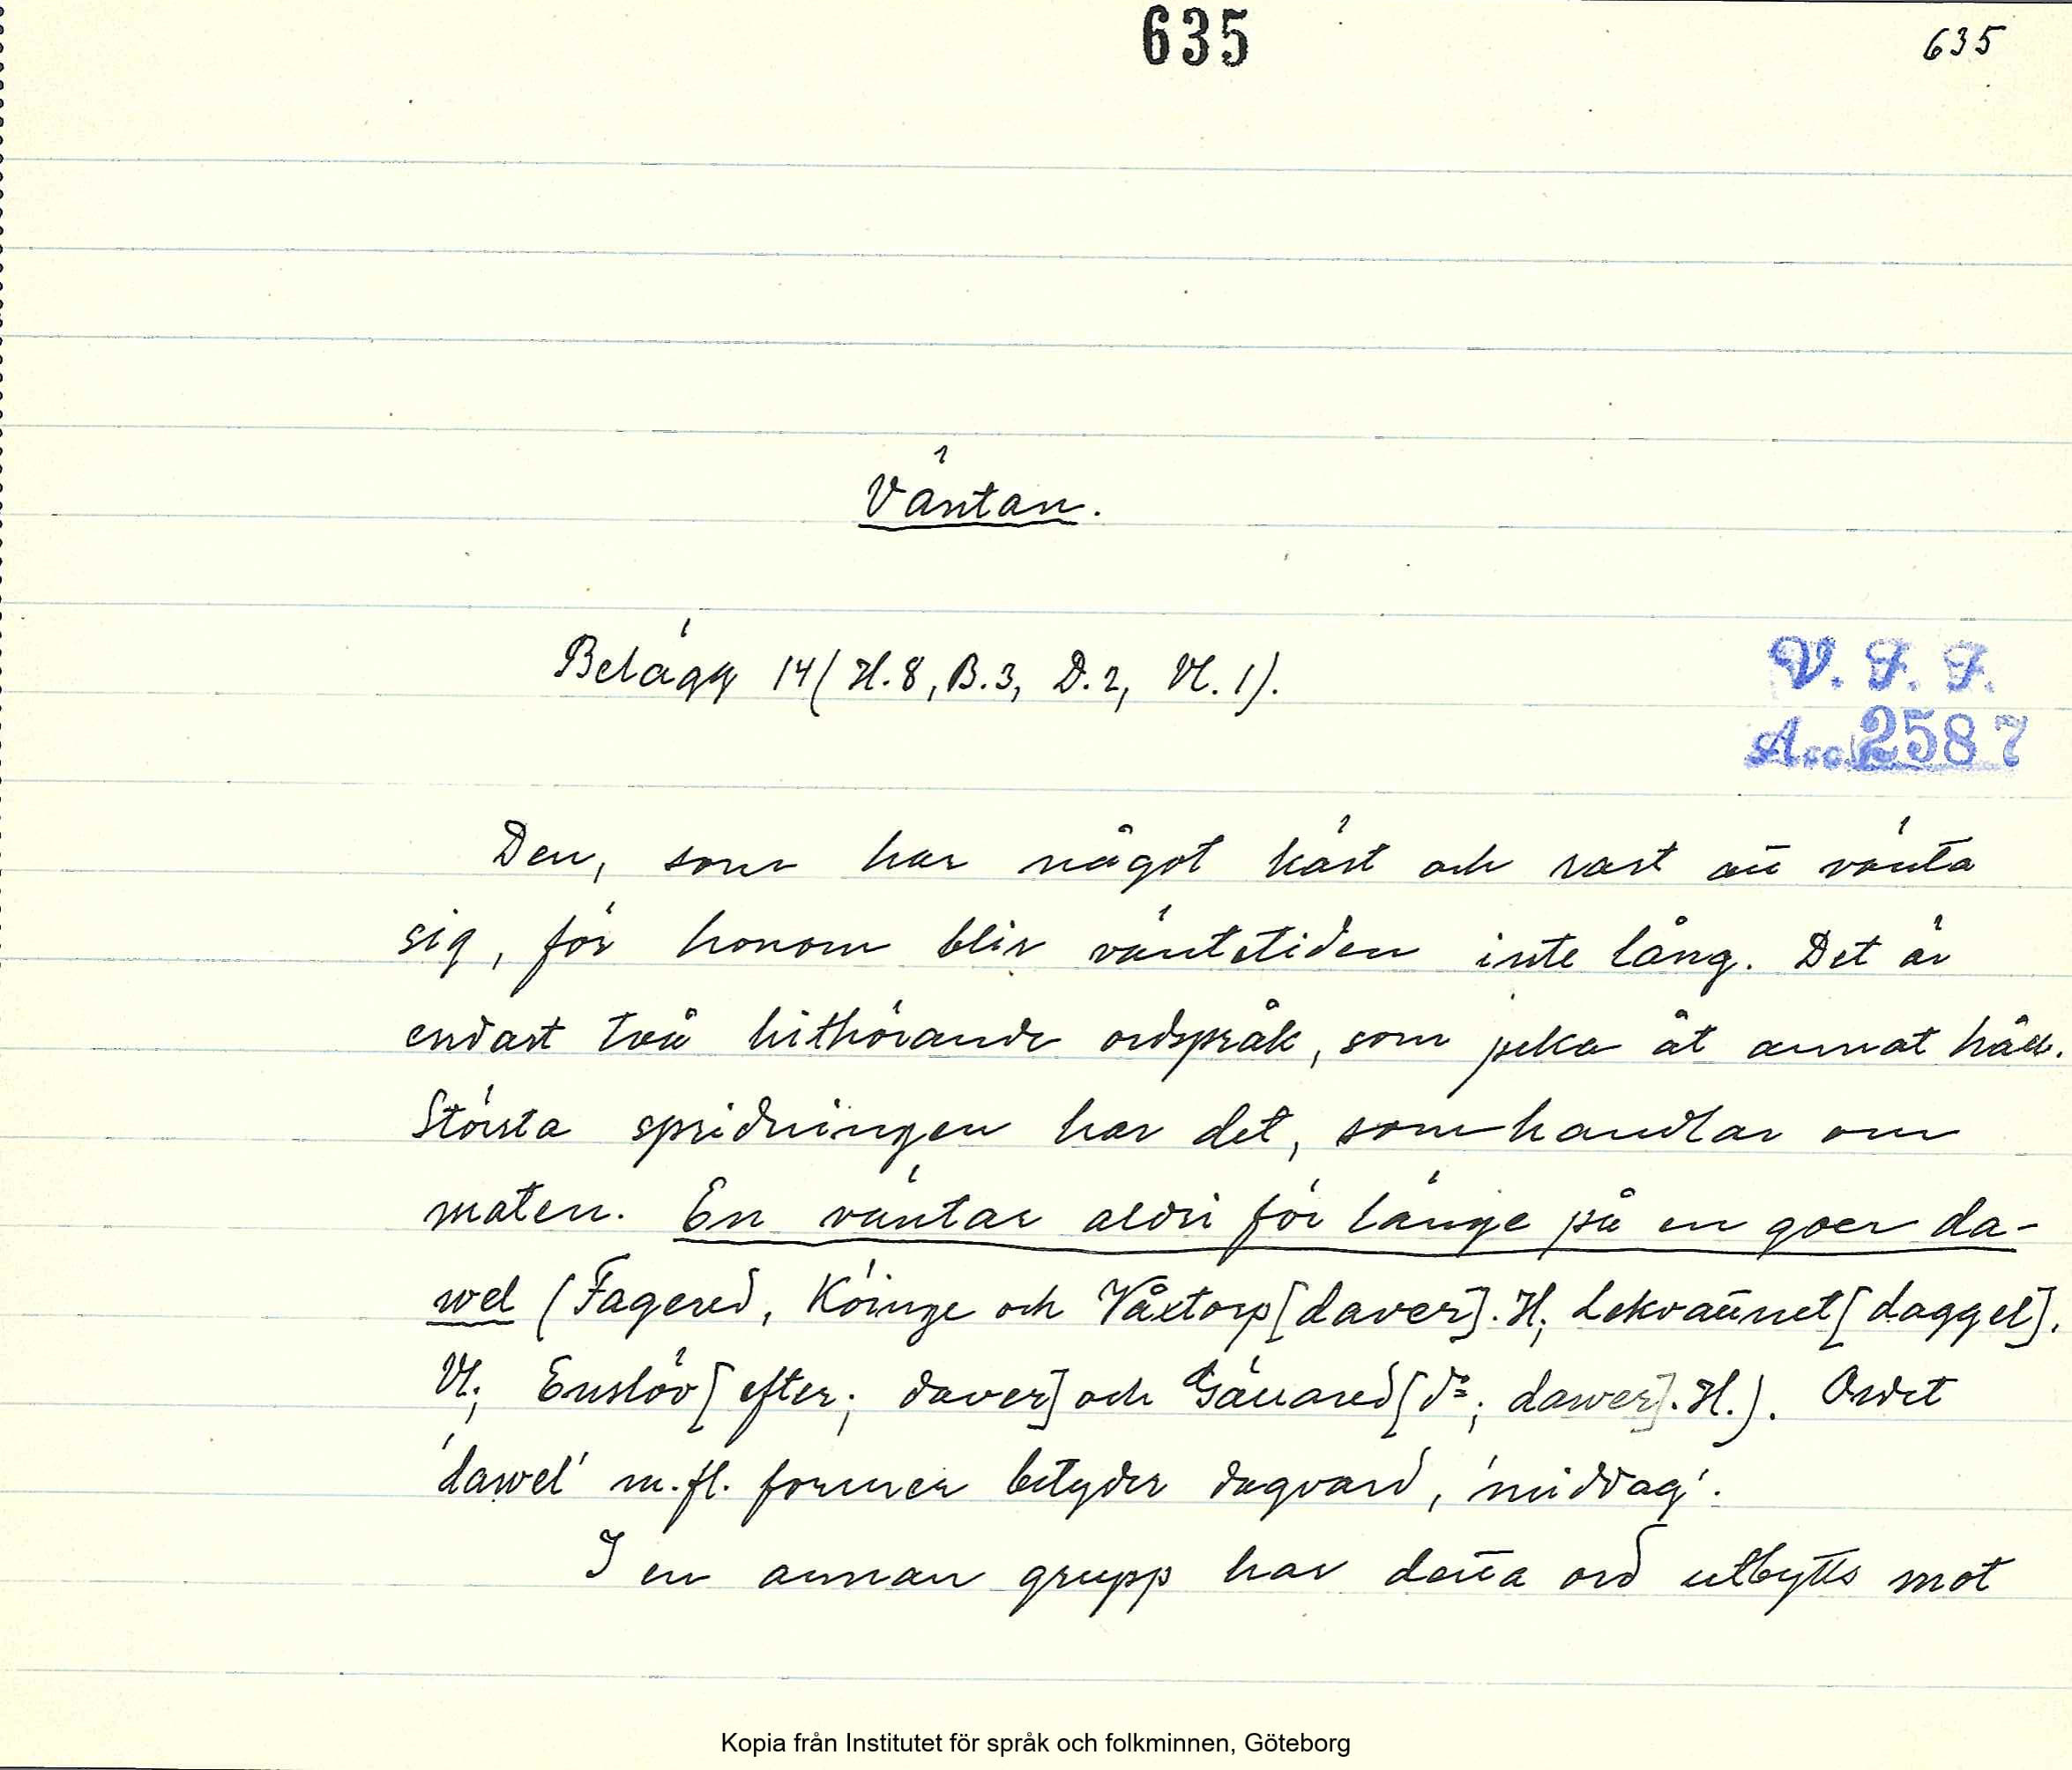 635
635
Väntan.
Belägg 14 (H. 8, B. 3, D. 2, Vl. 1).
V. F. F.
Acc. 2587
Den, som har något kärt och rart att vänta
sig, för honom blir väntetiden inte lång. Det är
endast två hithörande ordspråk, som peka åt annat håll.
Största spridningen har det, som handlar om
maten. En väntar aldri för länge på en goer da-
wel (Fagered, Köinge och Våxtorp [daver]. H; Lekvattnet [daggel].
Vl; Enslöv [efter; daver] och Gällared [do; dawer]. H.). Ordet
'dawel' m.fl. former betyder dagvard, 'middag'.
I en annan grupp har detta ord utbytts mot
Kopia från Institutet för språk och folkminnen, Göteborg